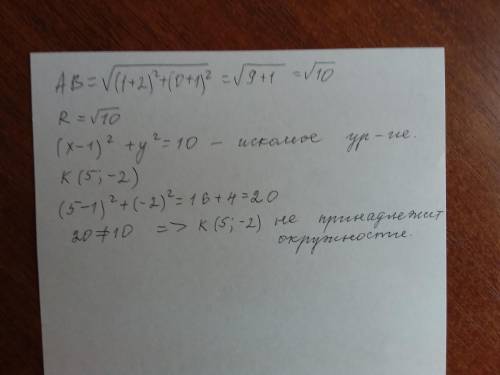 AB = √((1+2)²+(0+1)²) = √(9+1) = √10
R = √10
(x-1)² + y² = 10 - искомое ур-ие.
K (5; -2)
(5-1)² + (-2)² = 16 + 4 = 20
20 ≠ 10 => K (5; -2) не принадлежит
окружности.